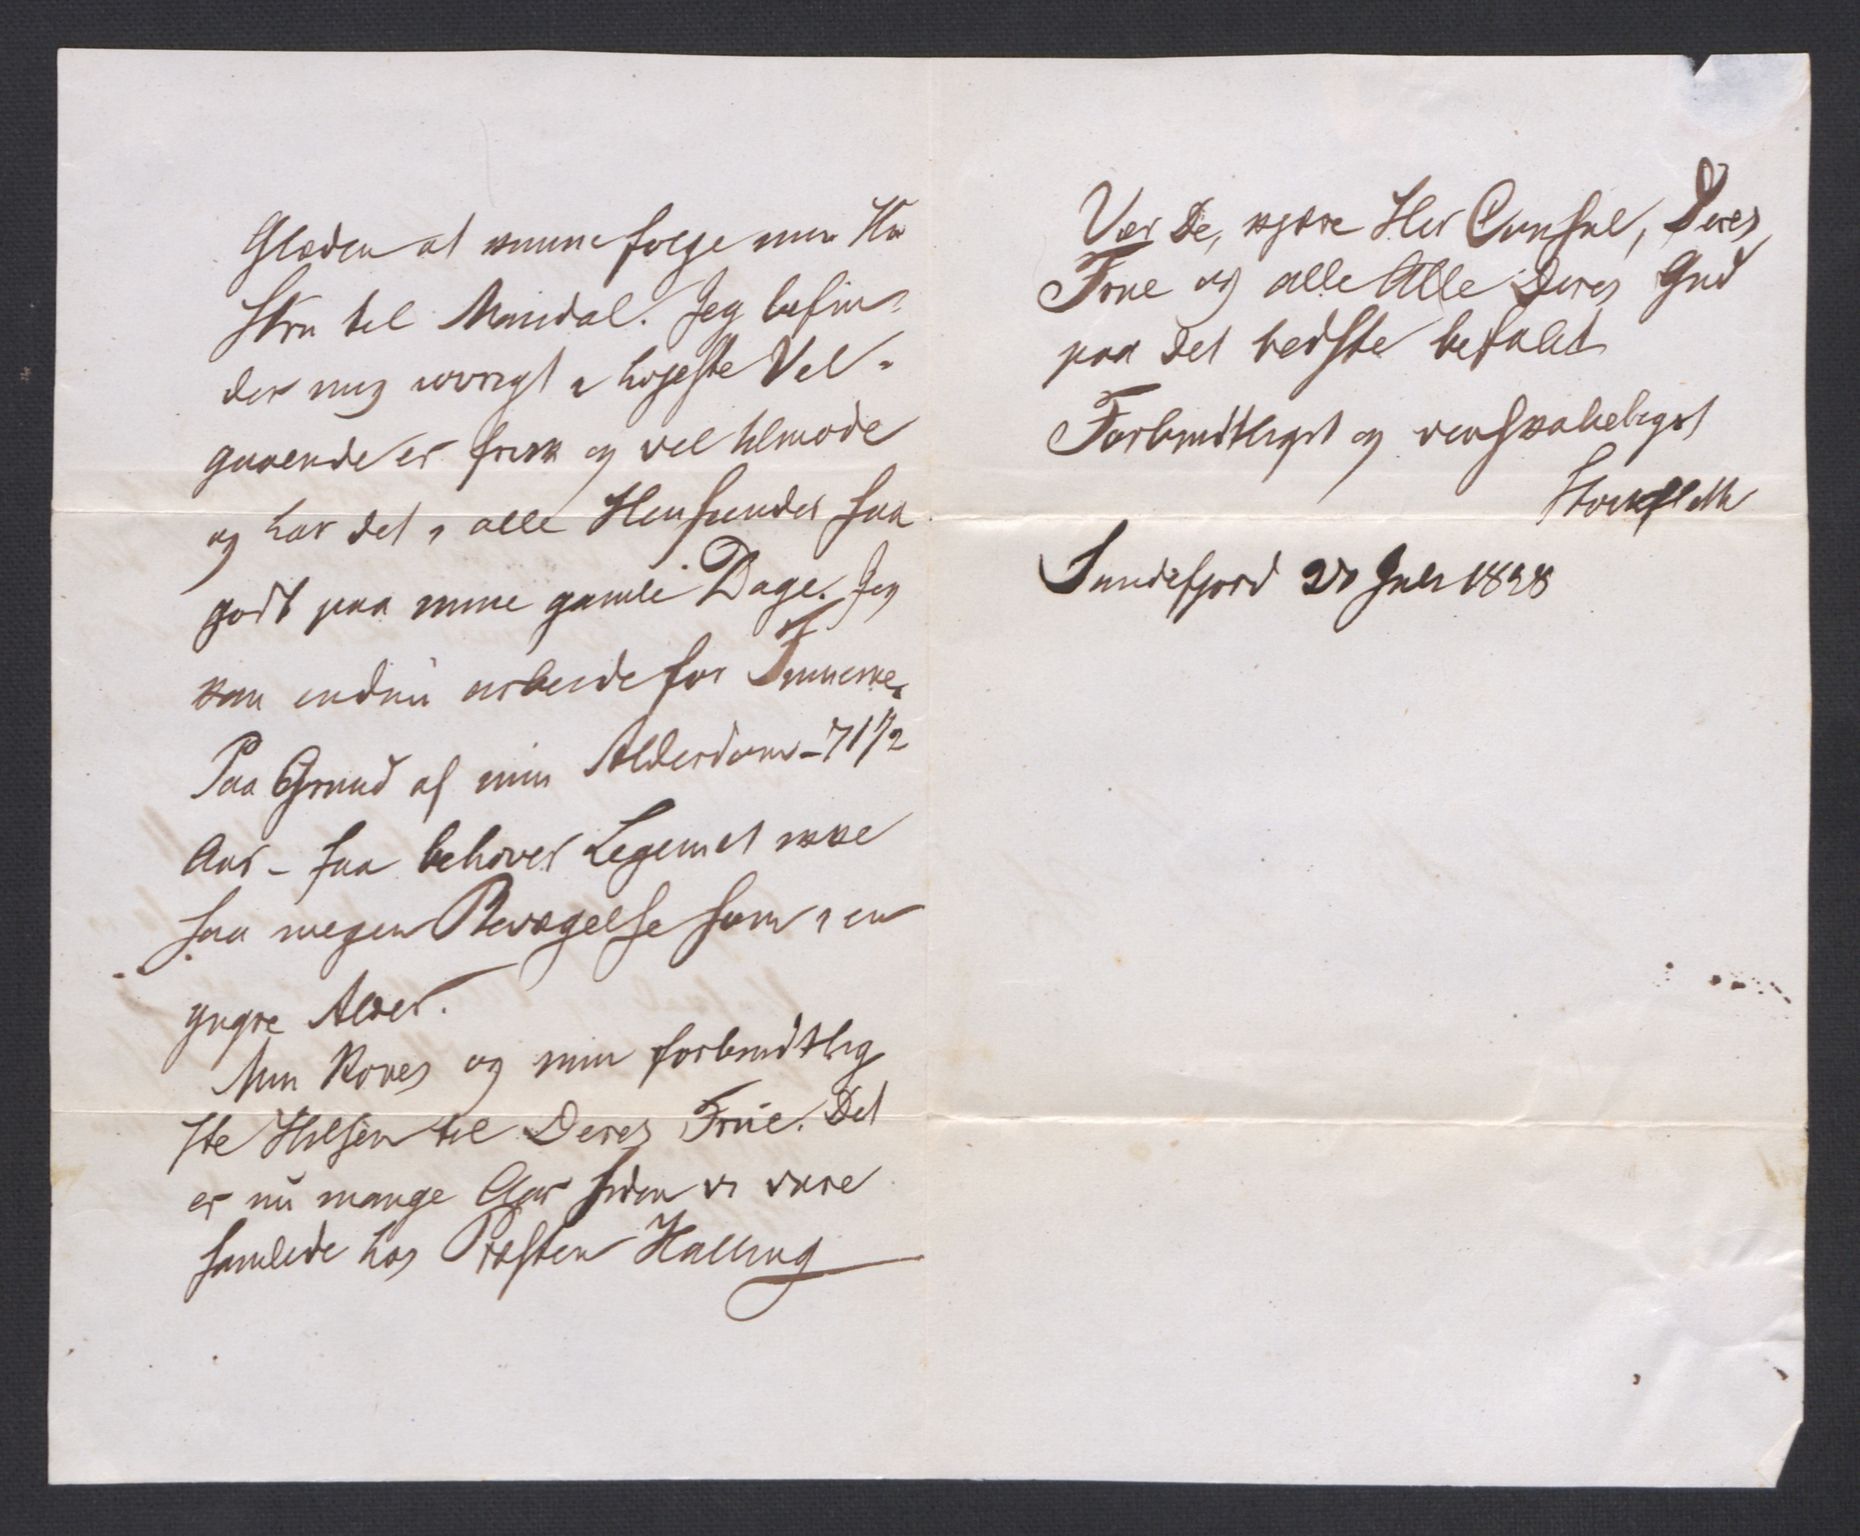 Glæden at kunne følge min Ko
Stru til Mandal. Jeg befin-
der mig iøvrigt i høyeste Vel-
gaaende er frisk og vel tilmode
og har det i alle Henseender saa
godt paa mine gamle Dage. Jeg
kan endnu arbeide for Finnerne.
Paa Grund af min Alderdom – 71 1/2
Aar – saa behøver Legemet ikke
saa megen Bevægelse som i en
yngre Alder.
Min Kones og min forbindtlig
ste Hilsen til Deres Frue. Det
er nu mange Aar siden vi vare
samlede hos Præsten Halling
Vær De, kjære Her Consul, Deres
Frue og alle Alle Deres Gud
paa det bedste befalet
Forbindtligst og venskabeligst
Stockfleth
Sandefjord 20 Juli 1858